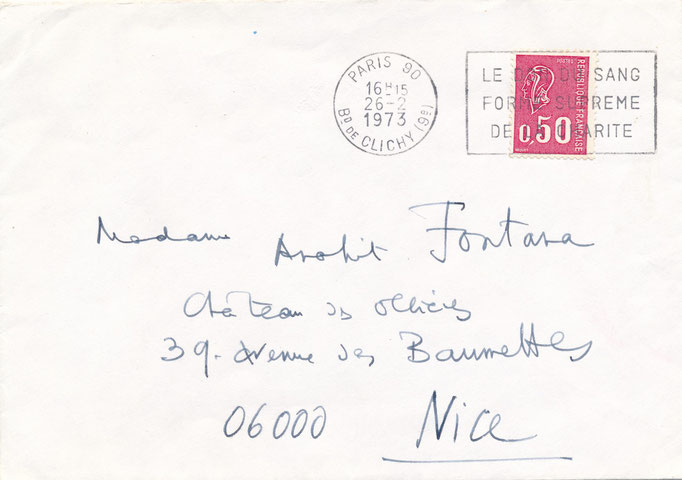 PARIS 90
16H15
26-2
1973
BD DE CLICHY (9E)
LE DON DU SANG
FORME SUPREME
DE LA CHARITE
POSTES
RÉPUBLIQUE FRANÇAISE
0,50
Madame Fontana
Château des Ollières
39. Avenue des Baumettes
06000 Nice